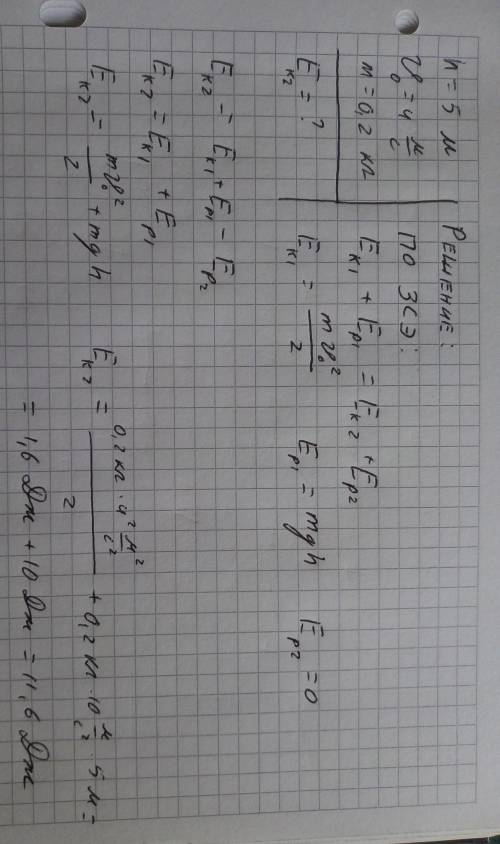 h = 5 м
υ₀ = 4 м/с
m = 0,2 кг
Eк₂ = ?
РЕШЕНИЕ:
ПО ЗСЭ:
Eк₁ + Eр₁ = Eк₂ + Eр₂
Eк₁ = mυ₀²/2   Eр₁ = mgh   Eр₂ = 0
Eк₂ = Eк₁ + Eр₁ − Eр₂
Eк₂ = Eк₁ + Eр₁
Eк₂ = mυ₀²/2 + mgh
Eк₂ = 0,2 кг · 4² м²/с² / 2 + 0,2 кг · 10 м/с² · 5 м =
= 1,6 Дж + 10 Дж = 11,6 Дж